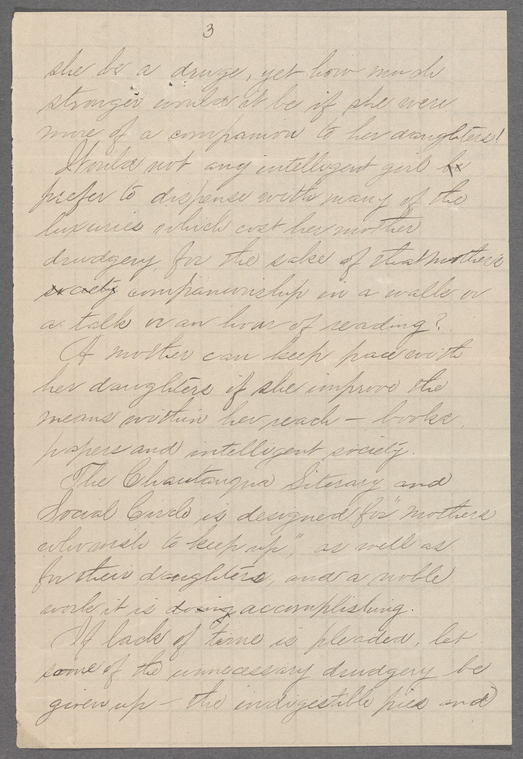 3
she be a druge, yet how much
stronger would it be if she were
more of a companion to her daughters!
Would not any intelligent girl
prefer to dispense with many of the
luxuries which cost her mother
drudgery for the sake of that mother's
society companionship in a walk or
a talk or an hour of reading?
A mother can keep pace with
her daughters if she improve the
means within her reach – books,
papers and intelligent society.
The Chautauqua Literary and
Social Circle is designed for "mothers
who wish to keep up", as well as
for their daughters, and a noble
work it is doing accomplishing.
If lack of time is pleaded, let
some of the unnecessary drudgery be
given up – the indigestible pies and